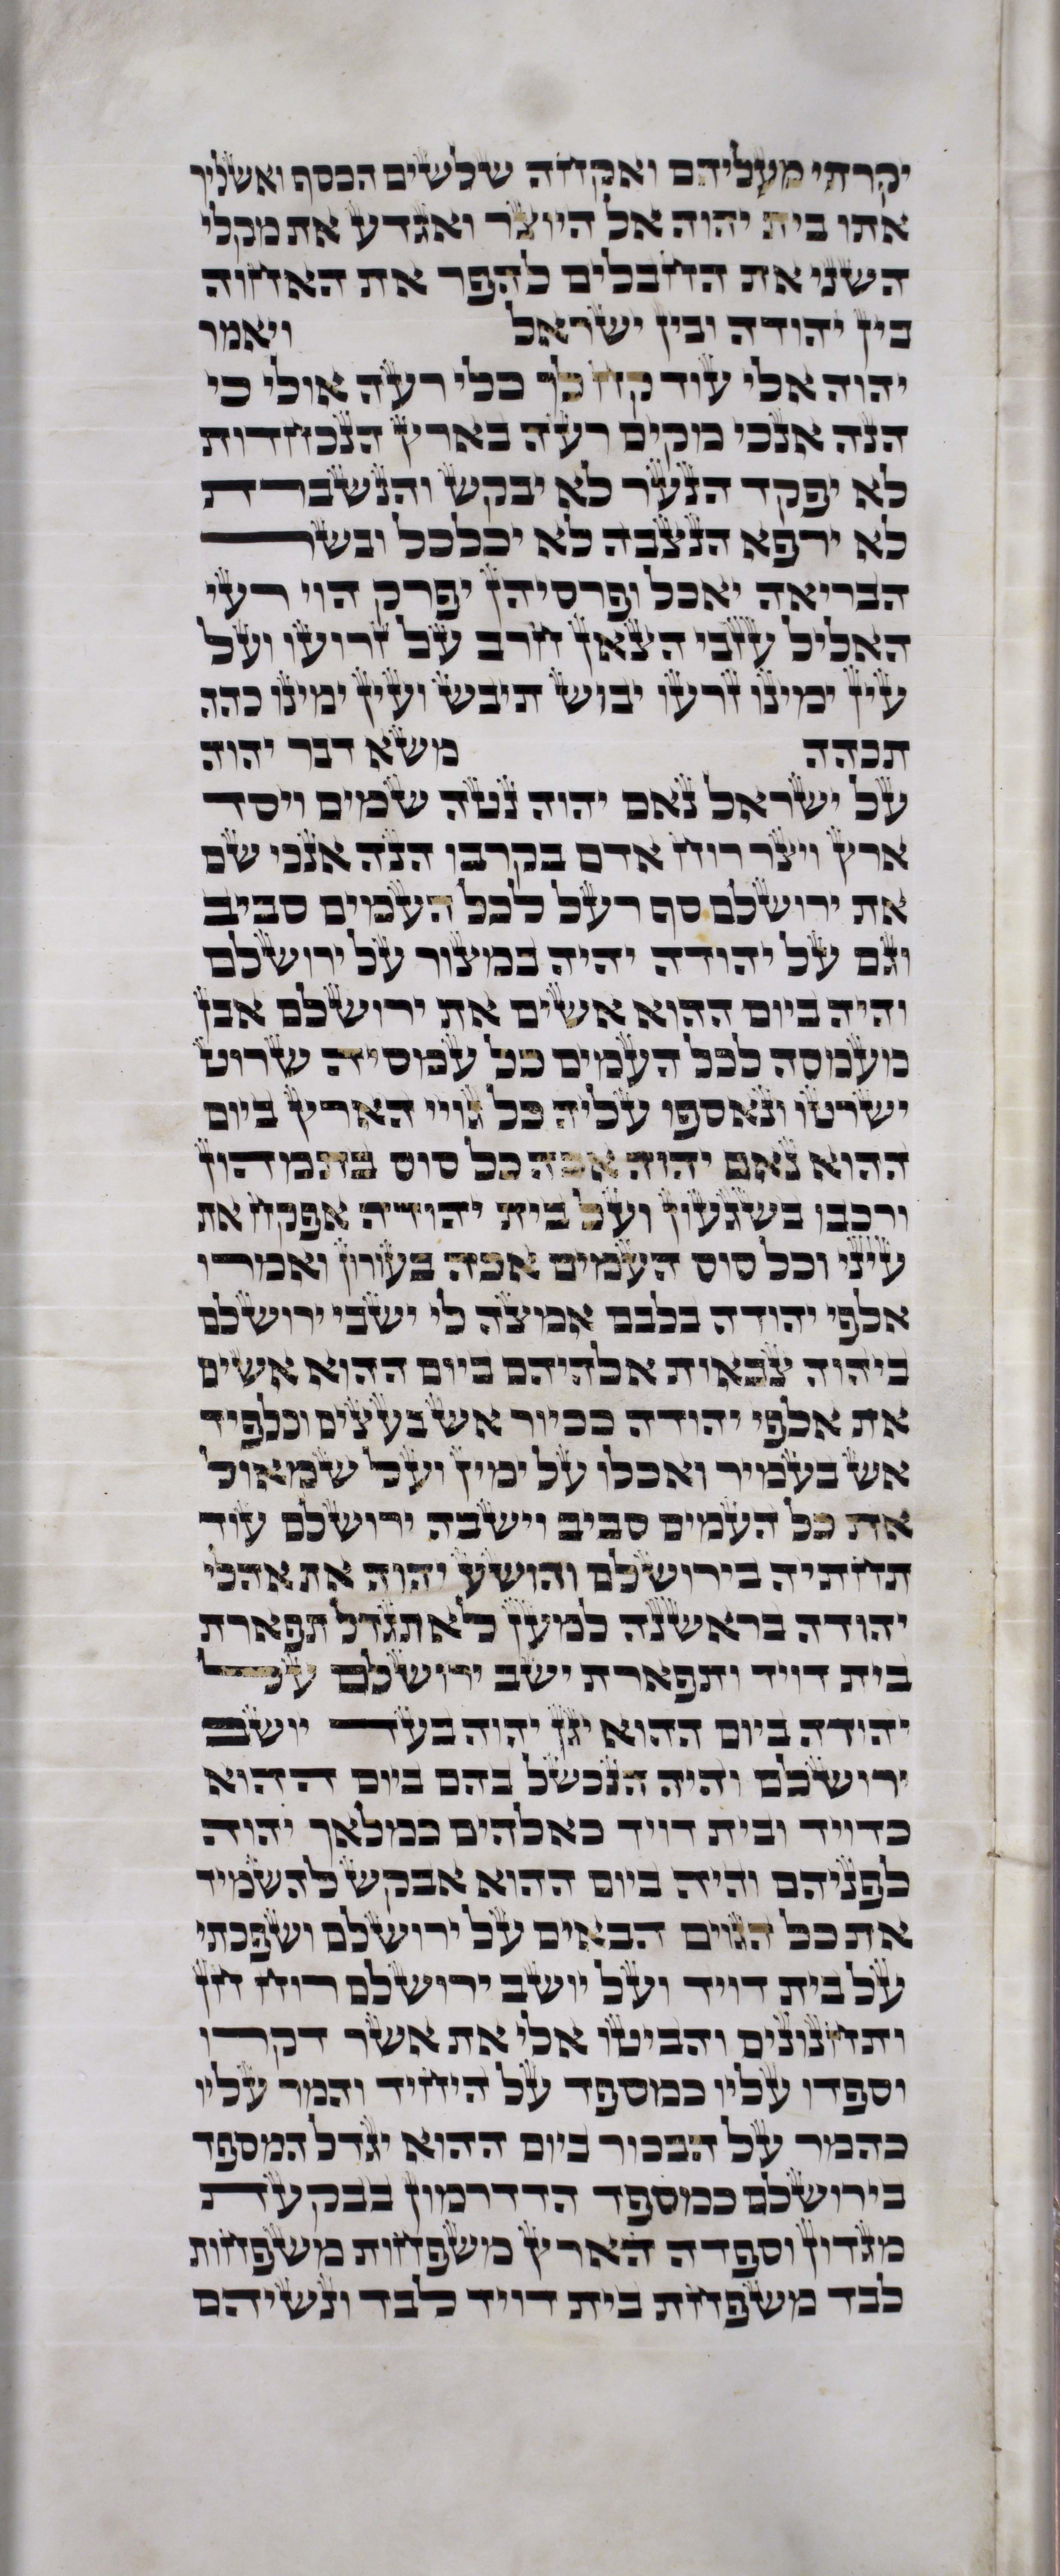 יקרתי מעליהם ואקחה שלשים הכסף ואשליך
אתו בית יהוה אל היוצר ואגדע את מקלי
השני את החבלים להפר את האחוה
בין יהודה ובין ישראל ויאמר
יהוה אלי עוד קח לך כלי רעה אולי כי
הנה אנכי מקים רעה בארץ הנכחדות
לא יפקד הנער לא יבקש והנשברת
לא ירפא הנצבה לא יכלכל ובשר
הבריאה יאכל ופרסיהן יפרק הוי רעי
האליל עזבי הצאן חרב על זרועו ועל
עין ימינו זרעו יבוש תיבש ועין ימינו כהה
תכהה משא דבר יהוה
על ישראל נאם יהוה נטה שמים ויסד
ארץ ויצר רוח אדם בקרבו הנה אנכי שם
את ירושלם סף רעל לכל העמים סביב
וגם על יהודה יהיה במצור על ירושלם
והיה ביום ההוא אשים את ירושלם אבן
מעמסה לכל העמים כל עמסיה שרוט
ישרטו ונאספו עליה כל גויי הארץ ביום
ההוא נאם יהוה אכה כל סוס בתמהון
ורכבו בשגעון ועל בית יהודה אפקח את
עיני וכל סוס העמים אכה בעורון ואמרו
אלפי יהודה בלבם אמצה לי ישבי ירושלם
ביהוה צבאות אלהיהם ביום ההוא אשים
את אלפי יהודה ככיור אש בעצים וכלפיד
אש בעמיר ואכלו על ימין ועל שמאול
את כל העמים סביב וישבה ירושלם עוד
תחתיה בירושלם והושע יהוה את אהלי
יהודה בראשנה למען לא תגדל תפארת
בית דויד ותפארת ישב ירושלם על
יהודה ביום ההוא יגן יהוה בעד יושב
ירושלם והיה הנכשל בהם ביום ההוא
כדויד ובית דויד כאלהים כמלאך יהוה
לפניהם והיה ביום ההוא אבקש להשמיד
את כל הגוים הבאים על ירושלם ושפכתי
על בית דויד ועל יושב ירושלם רוח חן
ותחנונים והביטו אלי את אשר דקרו
וספדו עליו כמספד על היחיד והמר עליו
כהמר על הבכור ביום ההוא יגדל המספד
בירושלם כמספד הדדרמון בבקעת
מגדון וספדה הארץ משפחות משפחות
לבד משפחת בית דויד לבד ונשיהם